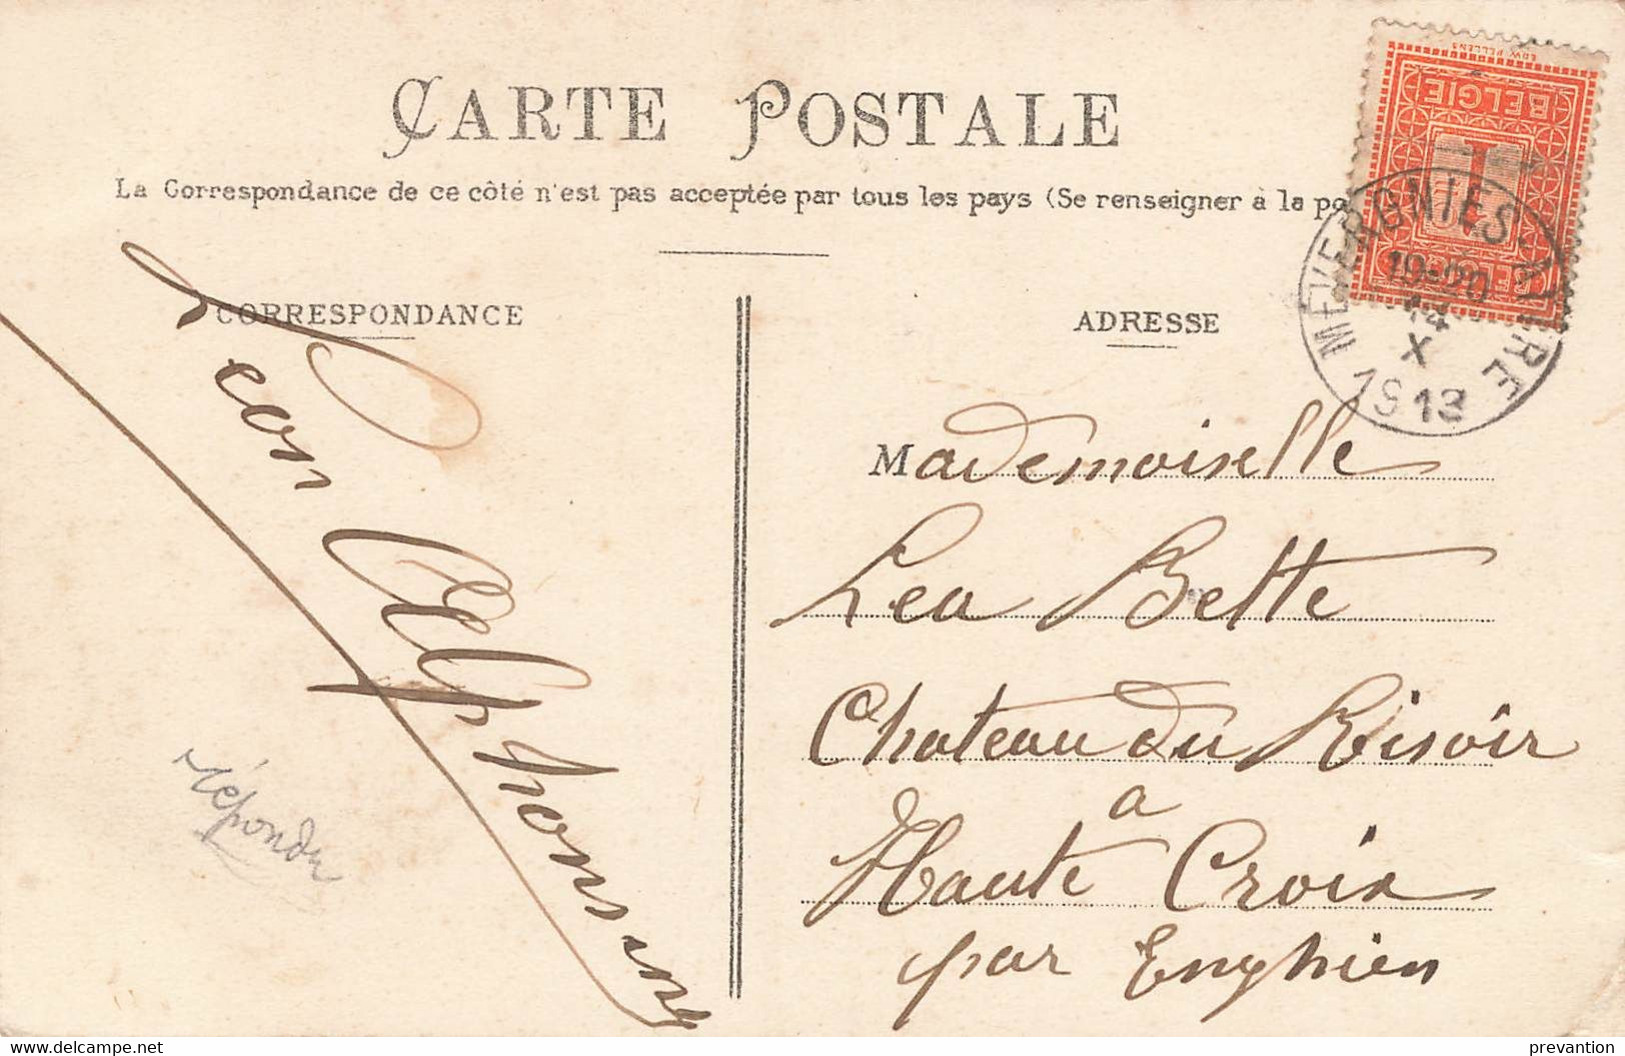 CARTE POSTALE
La Correspondance de ce côté n'est pas acceptée par tous les pays (Se renseigner à la po
CORRESPONDANCE
ADRESSE
BELGIE
1
BELGIQUE
EDW PELLENS
MEVERGNIES-ATTRE
19-20
14
X
1913
Leon Alphonsine
répondu
Mademoiselle
Lea Bette
Chateau du Risoir
a
Haute Croix
par Enghien
www.delcampe.net
prevantion